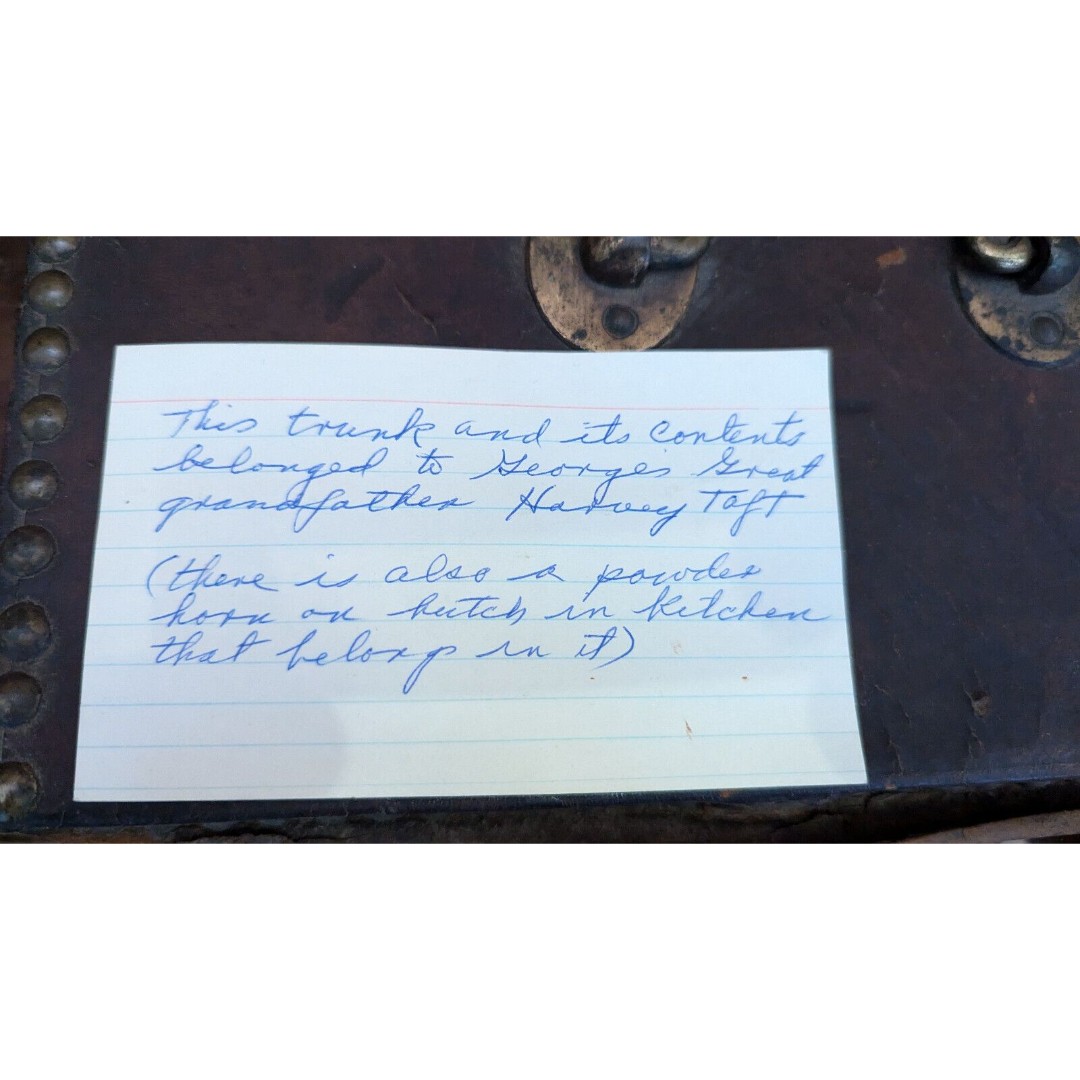 This trunk and its contents
belonged to George's Great
grandfather Harvey Taft
(there is also a powder
horn on hutch in kitchen
that belongs in it)